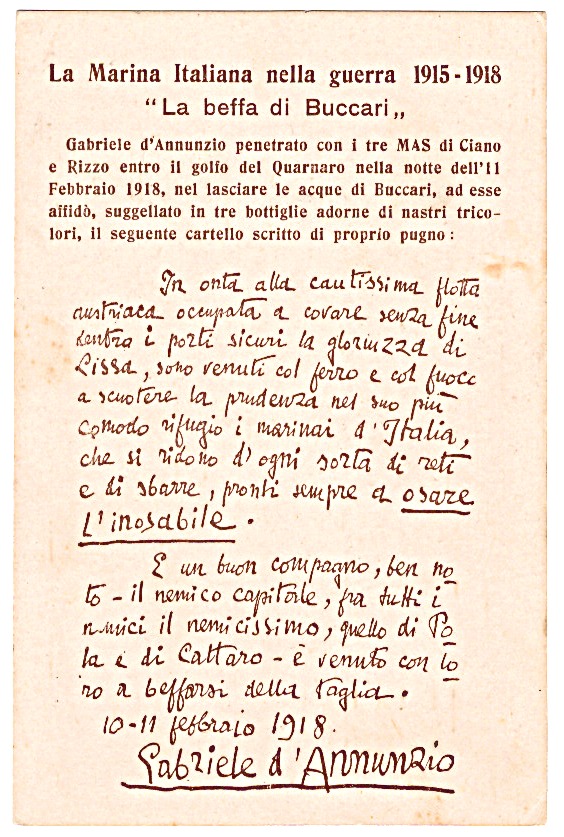 La Marina Italiana nella guerra 1915-1918
"La beffa di Buccari„
Gabriele d'Annunzio penetrato con i tre MAS di Ciano
e Rizzo entro il golfo del Quarnaro nella notte dell'11
Febbraio 1918, nel lasciare le acque di Buccari, ad esse
affidò, suggellato in tre bottiglie adorne di nastri trico-
lori, il seguente cartello scritto di proprio pugno:
In onta alla cautissima flotta
austriaca occupata a covare senza fine
dentro i porti sicuri la gloriuzza di
Lissa, sono venuti col ferro e col fuoco
a scuotere la prudenza nel suo più
comodo rifugio i marinai d'Italia,
che si ridono d'ogni sorta di reti
e di sbarre, pronti sempre a osare
l'inosabile.
E un buon compagno, ben no
to - il nemico capitale, fra tutti i
nemici il nemicissimo, quello di Po
la e di Cattaro - è venuto con lo
ro a beffarsi della taglia.
10-11 febbraio 1918.
Gabriele d'Annunzio